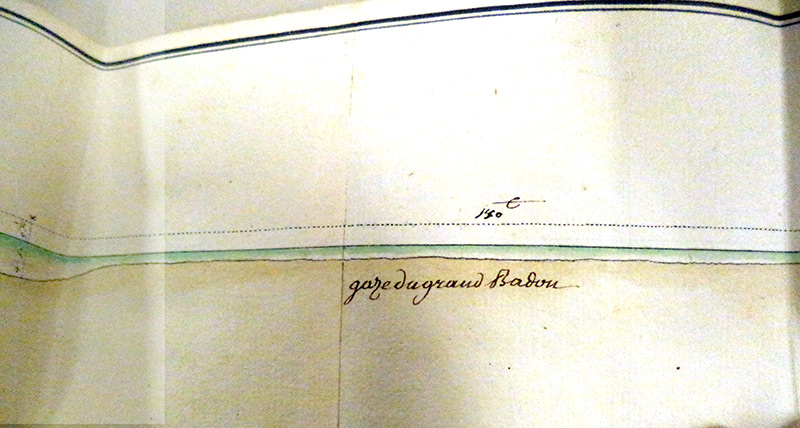 150 t
gaze du grand Badon